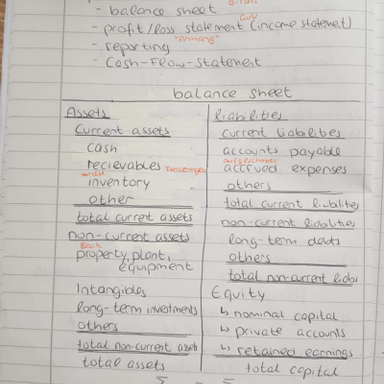 - balance sheet
- profit/loss statement (income statement)
- reporting
- Cash-Flow-Statement
balance sheet
Assets
Current assets
cash
recievables
inventory
other
total current assets
non-current assets
property, plant,
equipment
Intangibles
long-term investments
others
total non-current assets
total assets
liabilities
current liabilities
accounts payable
accrued expenses
others
total current liabilites
non-current liabilities
long-term debts
others
total non-current liabi
Equity
↳ nominal capital
↳ private accounts
↳ retained earnings
total capital